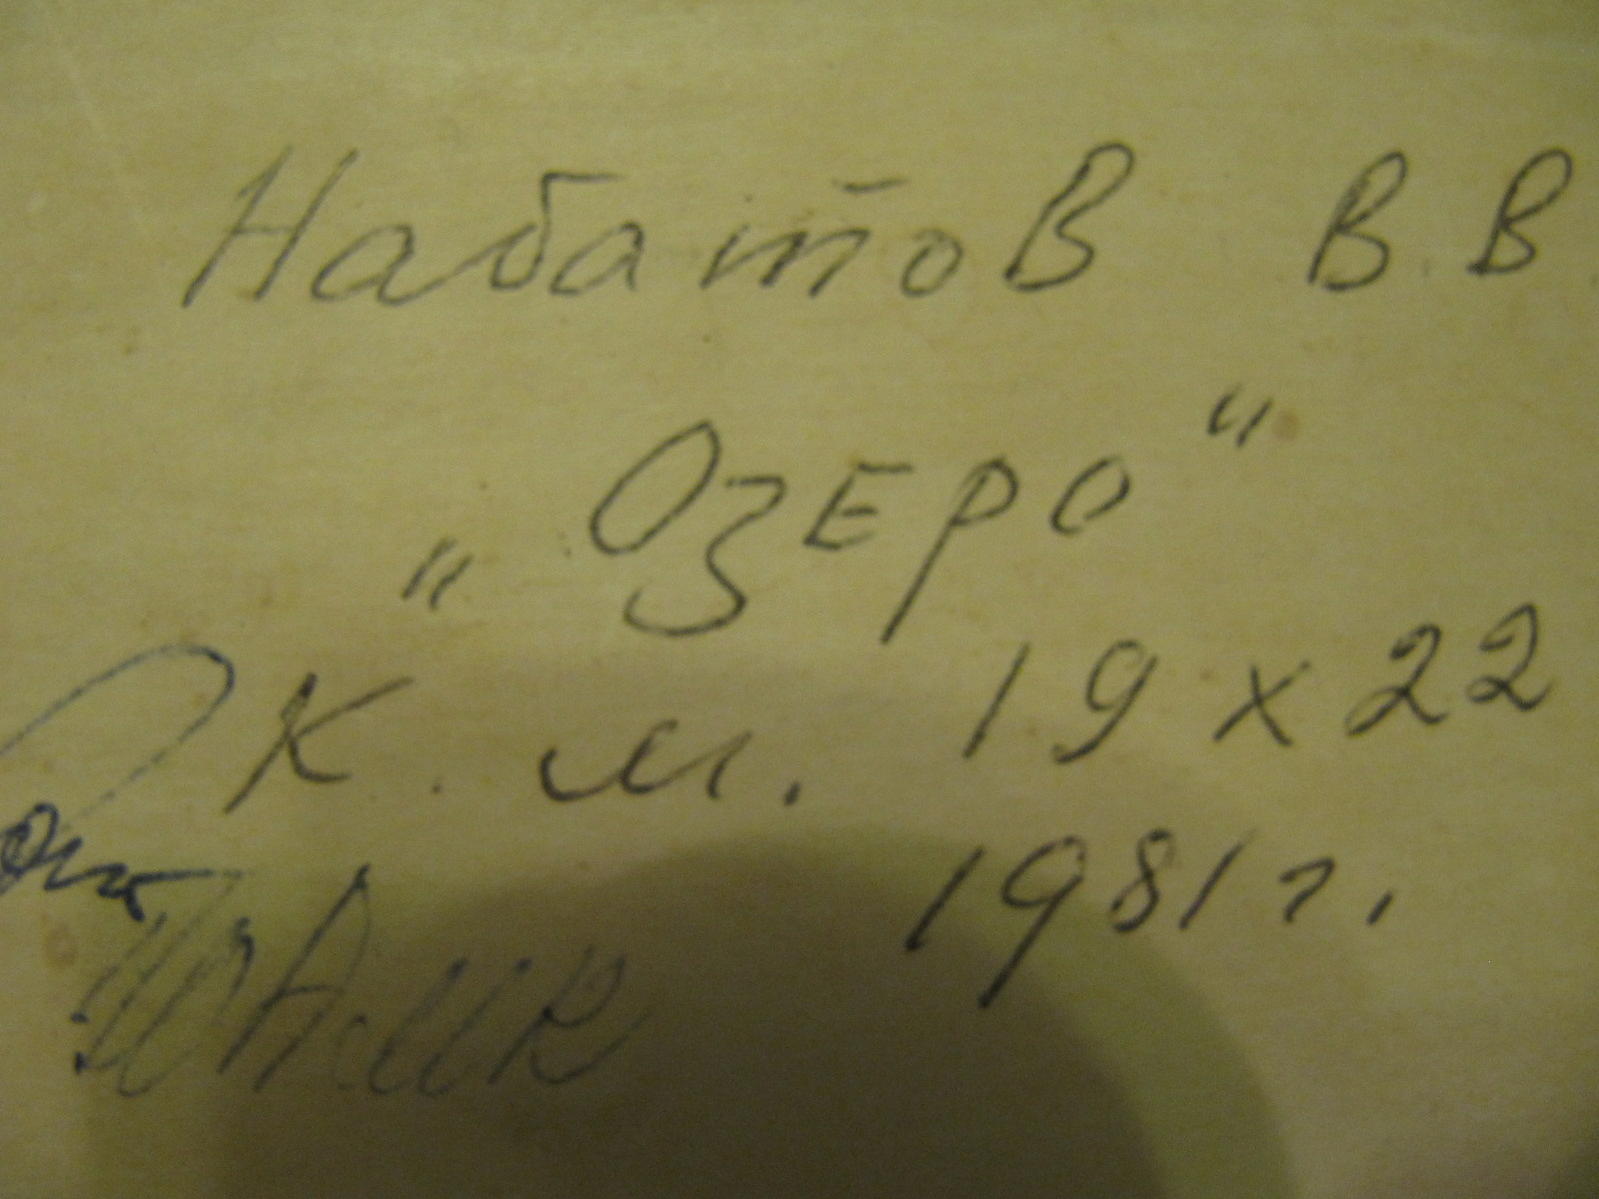 Набатов В.В
„Озеро“
К. м. 19 х 22
1981 г.